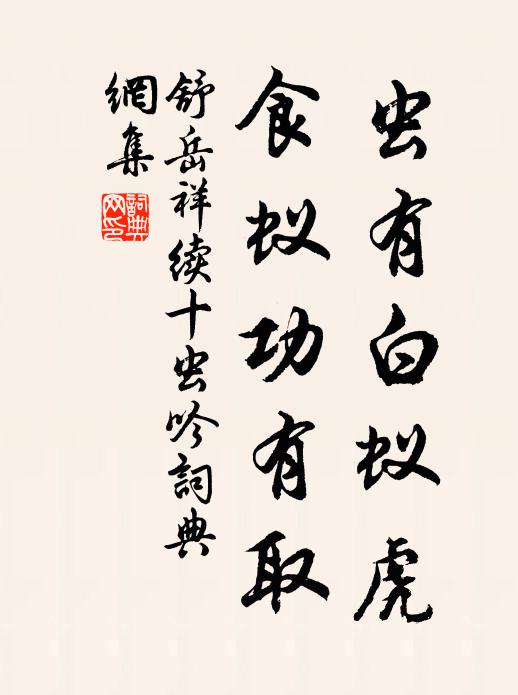 虫有白蚁虎
食蚁功有取
舒岳祥续十虫吟詞典
網集
詞典
网印